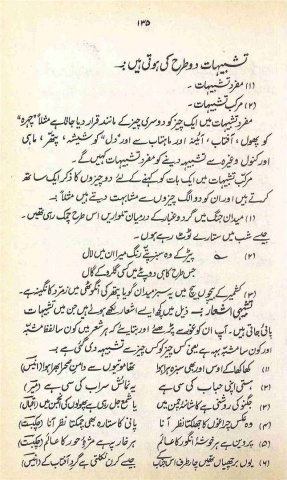 ۱۳۵
تشبیہات دو طرح کی ہوتی ہیں :۔
(۱) مفرد تشبیہات ۔
(۲) مرکب تشبیہات ۔
مفرد تشبیہات میں ایک چیز کو دوسری چیز کے مانند قرار دیا جاتا ہے مثلاً "چہرہ"
کو پھول، آفتاب، آئینہ اور ماہتاب سے اور "دل" کو شیشہ، پتھر، ماہی
اور کنول وغیرہ سے تشبیہ دینے کو مفرد تشبیہات کہیں گے۔
مرکب تشبیہات میں ایک بات کو کہنے کے لئے دو چیزوں کا ذکر ایک ساتھ
کرتے ہیں اور ان کو دو الگ چیزوں سے مشابہت دیتے ہیں مثلاً :۔
(۱) میدان جنگ میں گرد و غبار کے درمیان تلواریں اس طرح چمک رہی تھیں۔
جیسے شب میں ستارے ٹوٹ رہے ہوں۔
(۲) پیڑ کے وہ سبز پتے رنگ میں ان میں لال
جس طرح کاہی دوپٹے میں کسی گلرو کے گال
(۳) کشمیر کے بیچوں بیچ میں یہ سبز میدان گویا پتھر کی انگوٹھی میں زمرد کا نگینہ ہے۔
تشبیہی اشعار :۔ ذیل میں کچھ ایسے اشعار لکھے ہوئے ہیں جن میں تشبیہات
پائی جاتی ہیں۔ آپ ان کو غور سے پڑھئے اور بتایئے کہ ہر شعر میں کون سا لفظ مشبہ
اور کون سا مشبہ بہ ہے یعنی کس چیز کو کس چیز سے تشبیہ دی گئی ہے :۔
(۱) کھا کھا کے اوس اور بھی سبزہ ہرا ہوا تھا موتیوں سے دامن صحرا بھرا ہوا (انیس)
(۲) ہستی اپنی حباب کی سی ہے یہ نمائش سراب کی سی ہے (میر)
(۳) جگنو کی روشنی ہے کاشانۂ چمن میں یا شمع جل رہی ہے پھولوں کی انجمن میں (اقبال)
(۴) وہ عکس چراغوں کا جھلکتا نظر آنا پانی کا ستارہ بھی چمکتا نظر آنا (چکبست)
(۵) ہر خوشۂ انگور کا عالم ہر خار پہ ہے مژۂ حور کا عالم (چکبست)
(۶) یوں برچھیاں تھیں چار طرف اس جناب کے جیسے کرن نکلتی ہے گرد آفتاب کے (انیس)